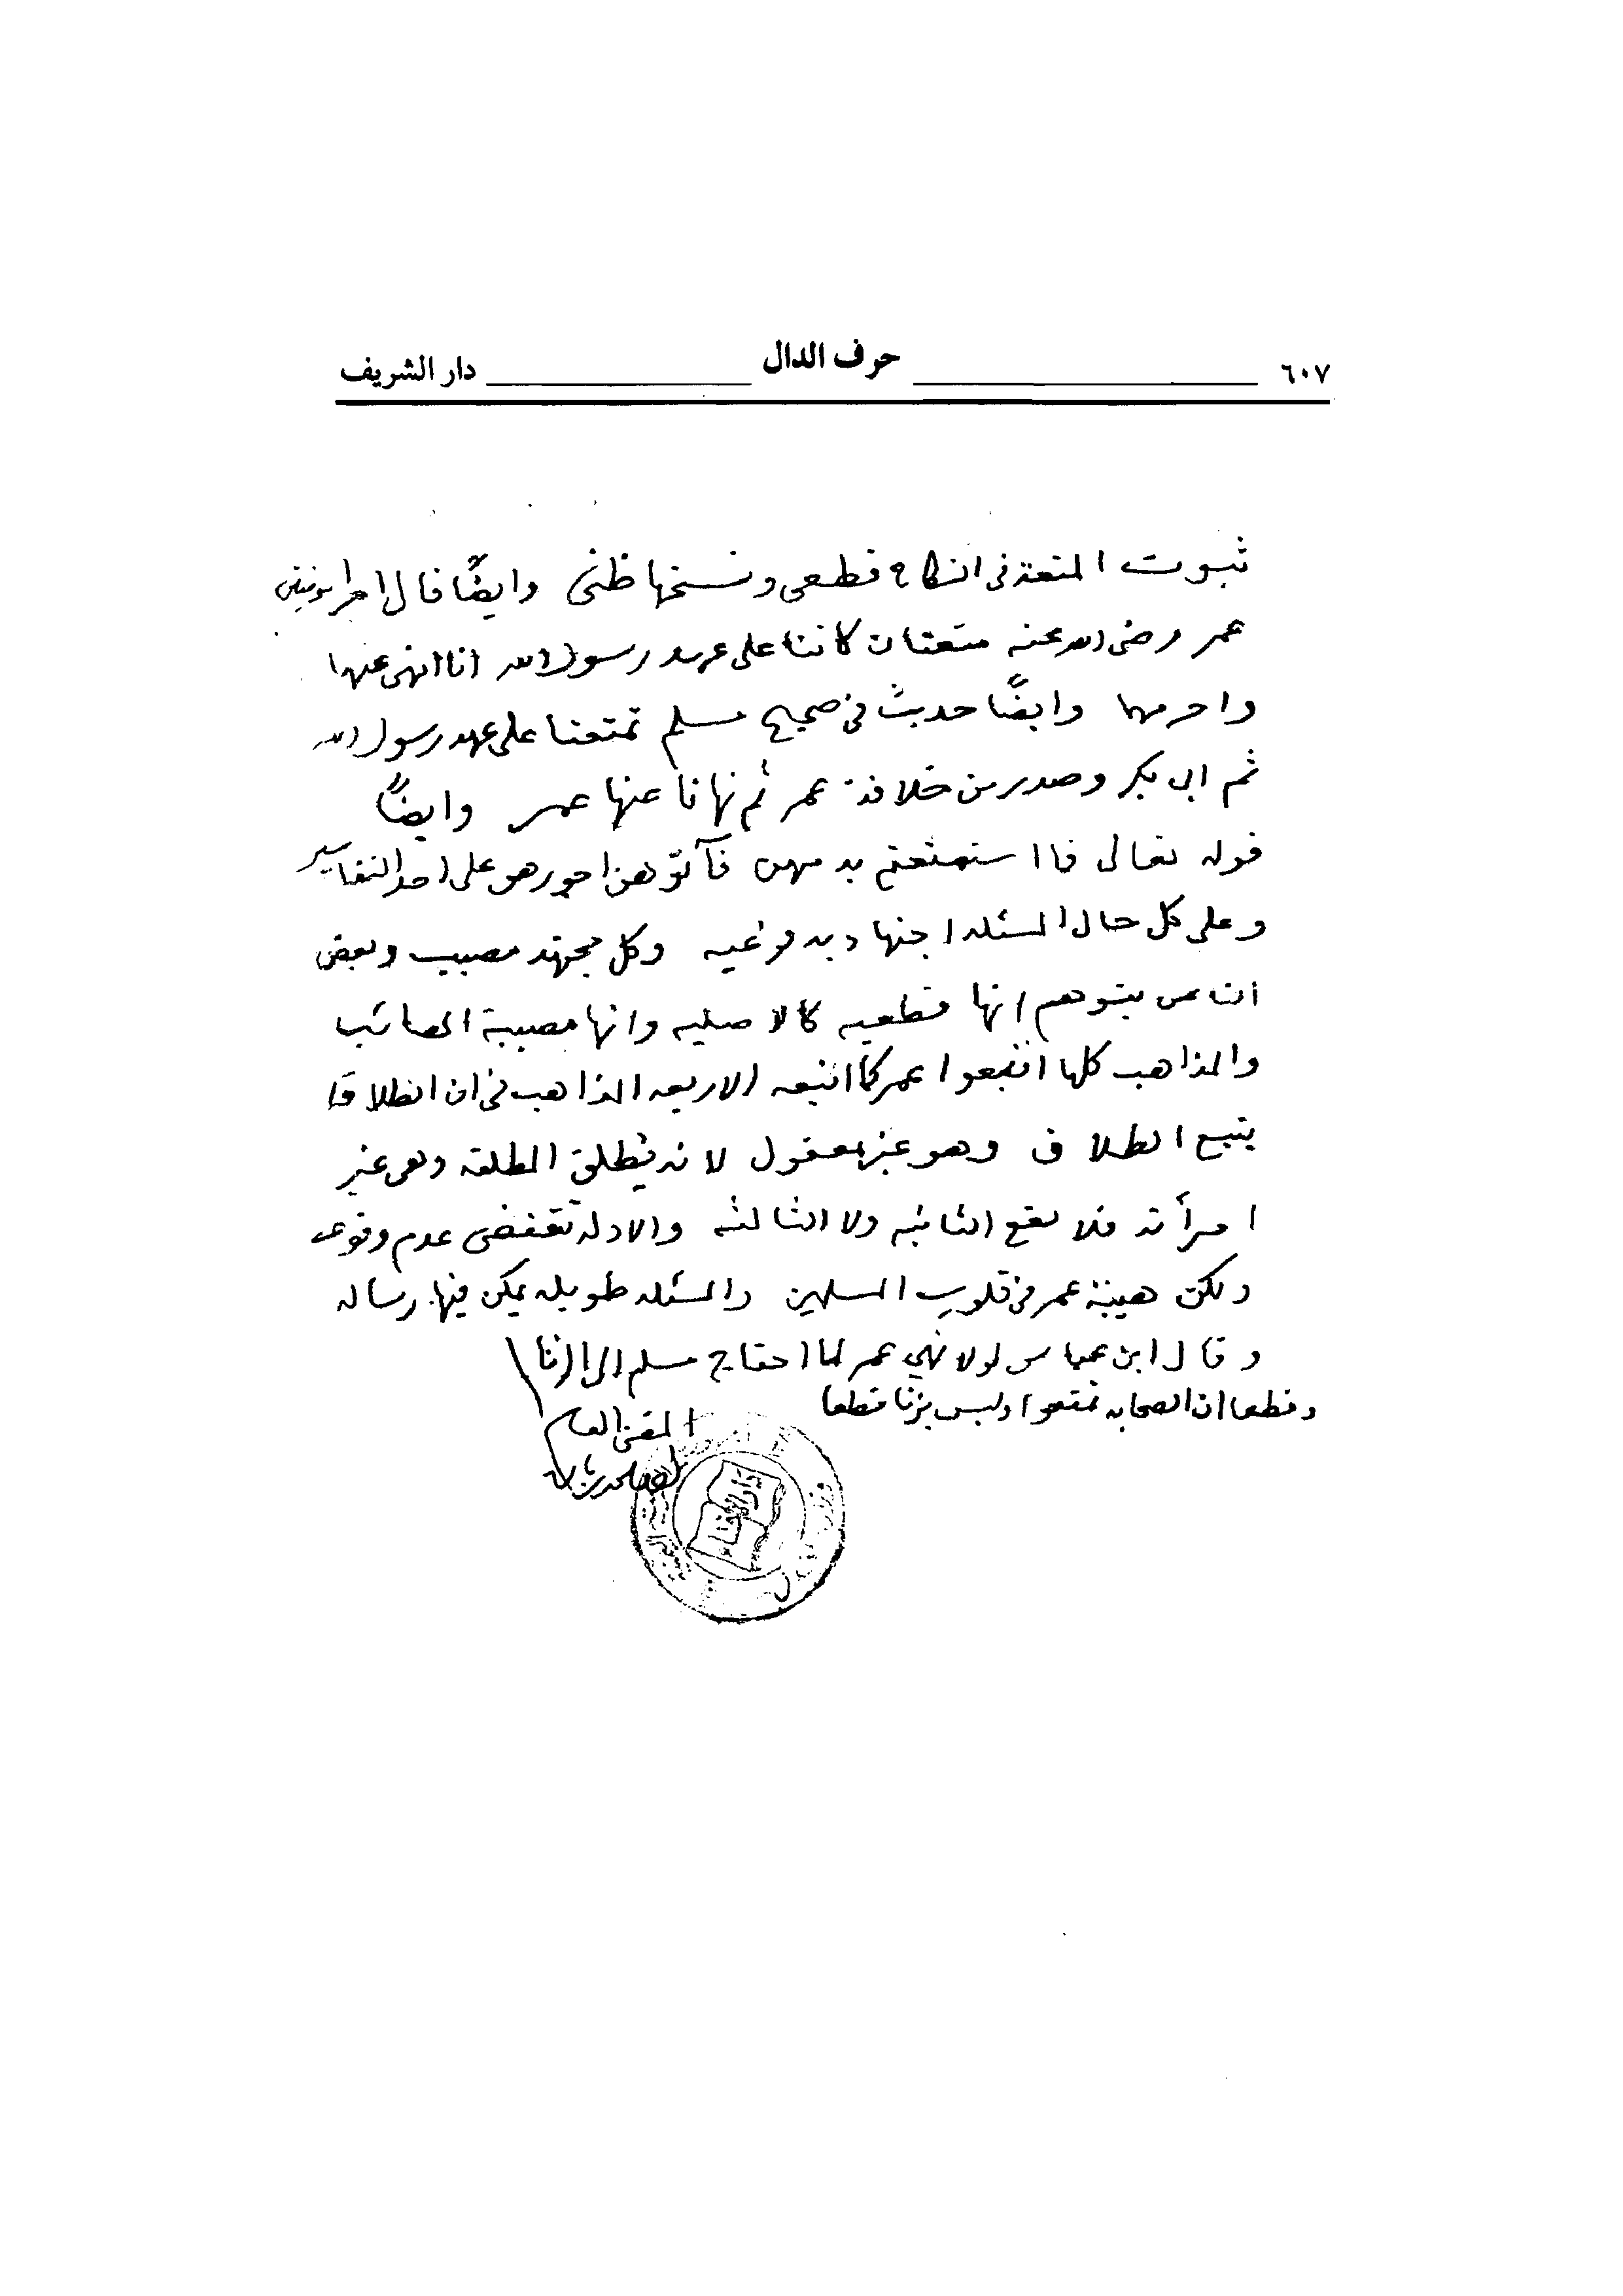 ٦٠٧ حرف الدال دار الشريف
ثبوت المتعة في النكاح قطعي ونسخها ظني وايضًا قال امير المؤمنين
عمر رضى الله عنه متعتان كانتا على عهد رسول الله انا انهى عنهما
واحرمهما وايضًا حديث في صحيح مسلم تمتعنا على عهد رسول الله
ثم ابى بكر وصدر من خلافة عمر ثم نهانا عنها عمر وايضًا
قوله تعالى فما استمتعتم به منهن فآتوهن اجورهن على احد التفاسير
وعلى كل حال المسئله اجتهاديه فرعيه وكل مجتهد مصيب وبعض
الناس يتوهم انها قطعيه كالاصليه وانها مصيبة المصائب
والمذاهب كلها اتبعوا عمر كما اتبعه الاربعه المذاهب في ان الطلاق
يتبع الطلاق وهو غير معقول لانه تطليق المطلقه وهى غير
امرأته فلا يقع الثانيه ولا الثالثه والادله تقتضى عدم وقوعه
ولكن هيبة عمر في قلوب المسلمين والمسئله طويله يمكن فيها رساله
وقال ابن عباس لولا نهي عمر لما احتاج مسلم الى الزنا
وقطعا ان الصحابه تمتعوا وليس بزنا قطعا
المفتى العام